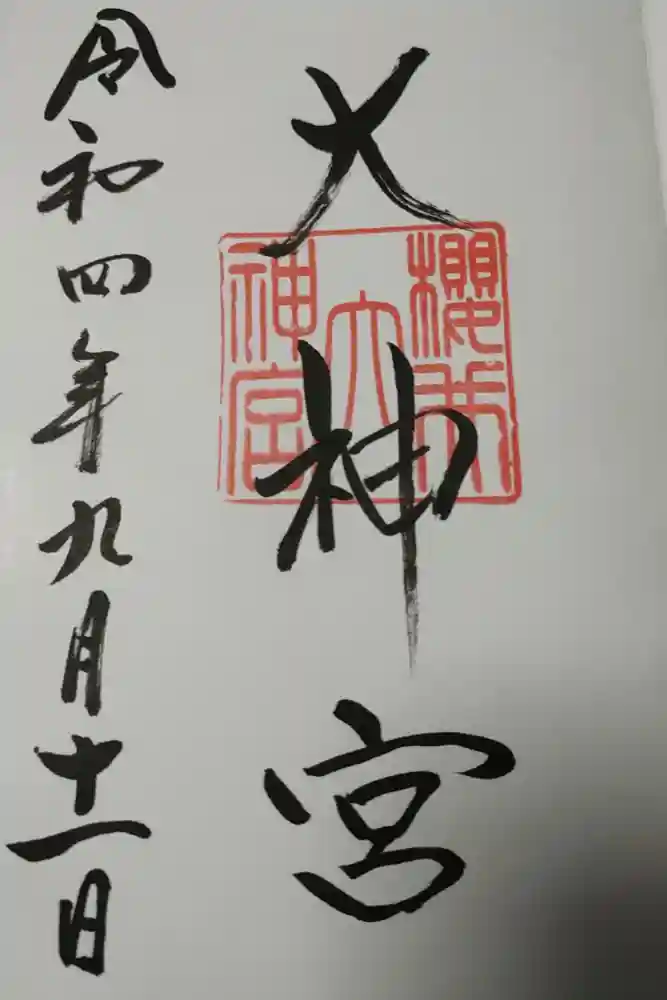 大神宮
櫻
大
神宮
令和四年九月十一日